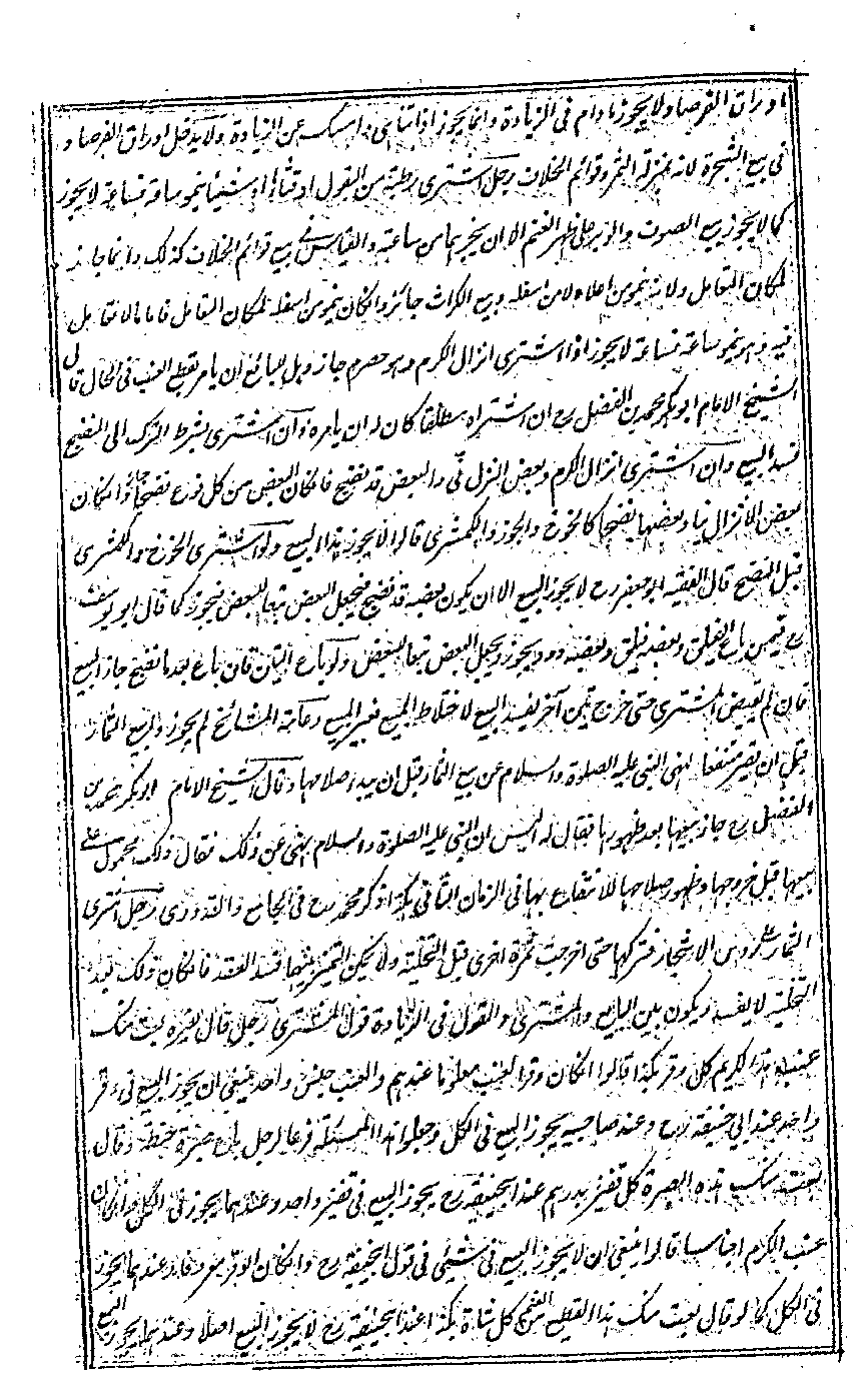 اوراق الفرصاد ولا يجوز مادام فى الزيادة وانما يجوز اذا تناهى وامسك عن الزيادة ولا يدخل اوراق الفرصاد
فى بيع الشجرة لانه بمنزلة الثمر وقوائم الخلاف رجل اشترى رطبة من البقول او قثاء او شيئا ينمو ساعة فساعة لا يجوز
كما لا يجوز بيع الصوف والوبر على ظهر الغنم الا ان يجز بها من ساعته والقياس فى بيع قوائم الخلاف كذلك وانما جاز
لمكان التعامل ولانه ينمو من اعلاه لا من اسفله وبيع الكراث جائز وانكان ينمو من اسفله لمكان التعامل فاما ما لا تعامل
فيه وهو ينمو ساعة فساعة لا يجوز اذا اشترى انزال الكرم وهو حصرم جاز وهل للبائع ان يامر بقطع العنب فى الحال قال
الشيخ الامام ابوبكر محمد بن الفضل رح ان اشتراه مطلقا كان له ان يامره وان اشترى بشرط الترك الى النضيج
فسد البيع وان اشترى انزال الكرم وبعض النزل نى والبعض قد نضيج فانكان البعض من كل نوع نضيجا جاز وانكان
بعض الانزال نيا وبعضها نضيجا كالخوخ والجوز والكمثرى قالوا لا يجوز هذا البيع ولو اشترى الخوخ والكمثرى
قبل النضيج قال الفقيه ابو جعفر رح لا يجوز البيع الا ان يكون بعضه قد نضيج فيجعل البعض تبعا للبعض فيجوز كما قال ابو يوسف
رح فيمن باع الفيلق وبعضه فيلق وبعضه دود يجوز ويجعل البعض تبعا للبعض ولو باع التين فان باع بعد ما نضيج جاز البيع
فان لم يقبض المشترى حتى خرج تين آخر يفسد البيع لاختلاط المبيع بغير المبيع وعامة المشائخ لم يجوزوا بيع الثمار
قبل ان يصير منتفعا لنهى النبى عليه الصلوة والسلام عن بيع الثمار قبل ان يبدو صلاحها وقال الشيخ الامام ابوبكر محمد بن
الفضل رح جاز بيعها بعد ظهورها فقال له اليس ان النبى عليه الصلوة والسلام نهى عن ذلك فقال ذلك محمول على
بيعها قبل خروجها وظهور صلاحها للانتفاع بها فى الزمان الثانى هكذا ذكر محمد رح فى الجامع والقدورى رجل اشترى
الثمار على رؤس الاشجار فتركها حتى اخرجت ثمرة اخرى قبل التخلية ولا يمكن التميز بينها فسد العقد فانكان ذلك بعد
التخلية لا يفسد ويكون بين البائع والمشترى والقول فى الزيادة قول المشترى رجل قال لغيره بعت منك
عنب هذا الكرم كل وقر بكذا قالوا انكان وقر العنب معلوما عندهم والعنب جنس واحد ينبغى ان يجوز البيع فى وقر
واحد عند ابي حنيفة رح وعند صاحبيه يجوز البيع فى الكل وجعلوا هذا المسئلة فرعا لرجل باع صبرة حنطة وقال
بعت منك هذه الصبرة كل قفيز بدرهم عند ابحنيفة رح يجوز البيع فى قفيز واحد وعندهما يجوز فى الكل وانكان
عنب الكرم اجناسا قالوا ينبغى ان لا يجوز البيع فى شيئى فى قول ابحنيفة رح وانكان الوقر معروفا وعندهما يجوز
فى الكل كما لو قال بعت منك هذا القطيع من الغنم كل شاة بكذا عند ابحنيفة رح لا يجوز البيع اصلا وعندهما يجوز البيع